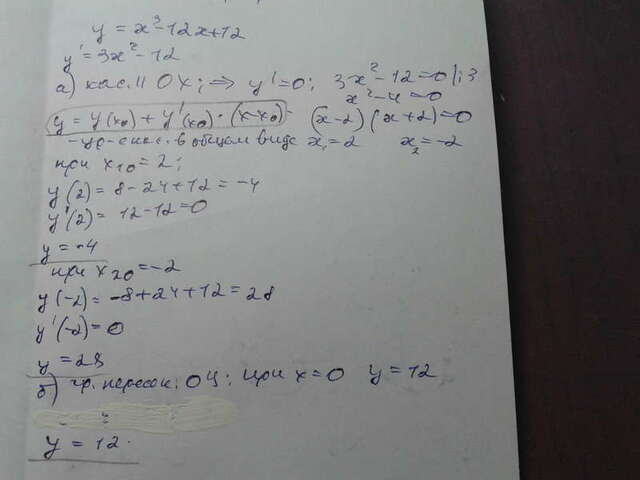 y = x³-12x+12
y' = 3x²-12
а) кас. || OX; ⇒ y'=0; 3x²-12=0 |:3
x²-4=0
y = y(x₀) + y'(x₀)·(x-x₀) (x-2)(x+2)=0
-ур-е кас. в общем виде x₁=2 x₂=-2
при x₁₀=2;
y(2) = 8-24+12 = -4
y'(2) = 12-12=0
y = -4
при x₂₀=-2
y(-2) = -8+24+12 = 28
y'(-2)=0
y = 28
б) гр. пересек. ОЦ; при x=0 y=12
y = 12.